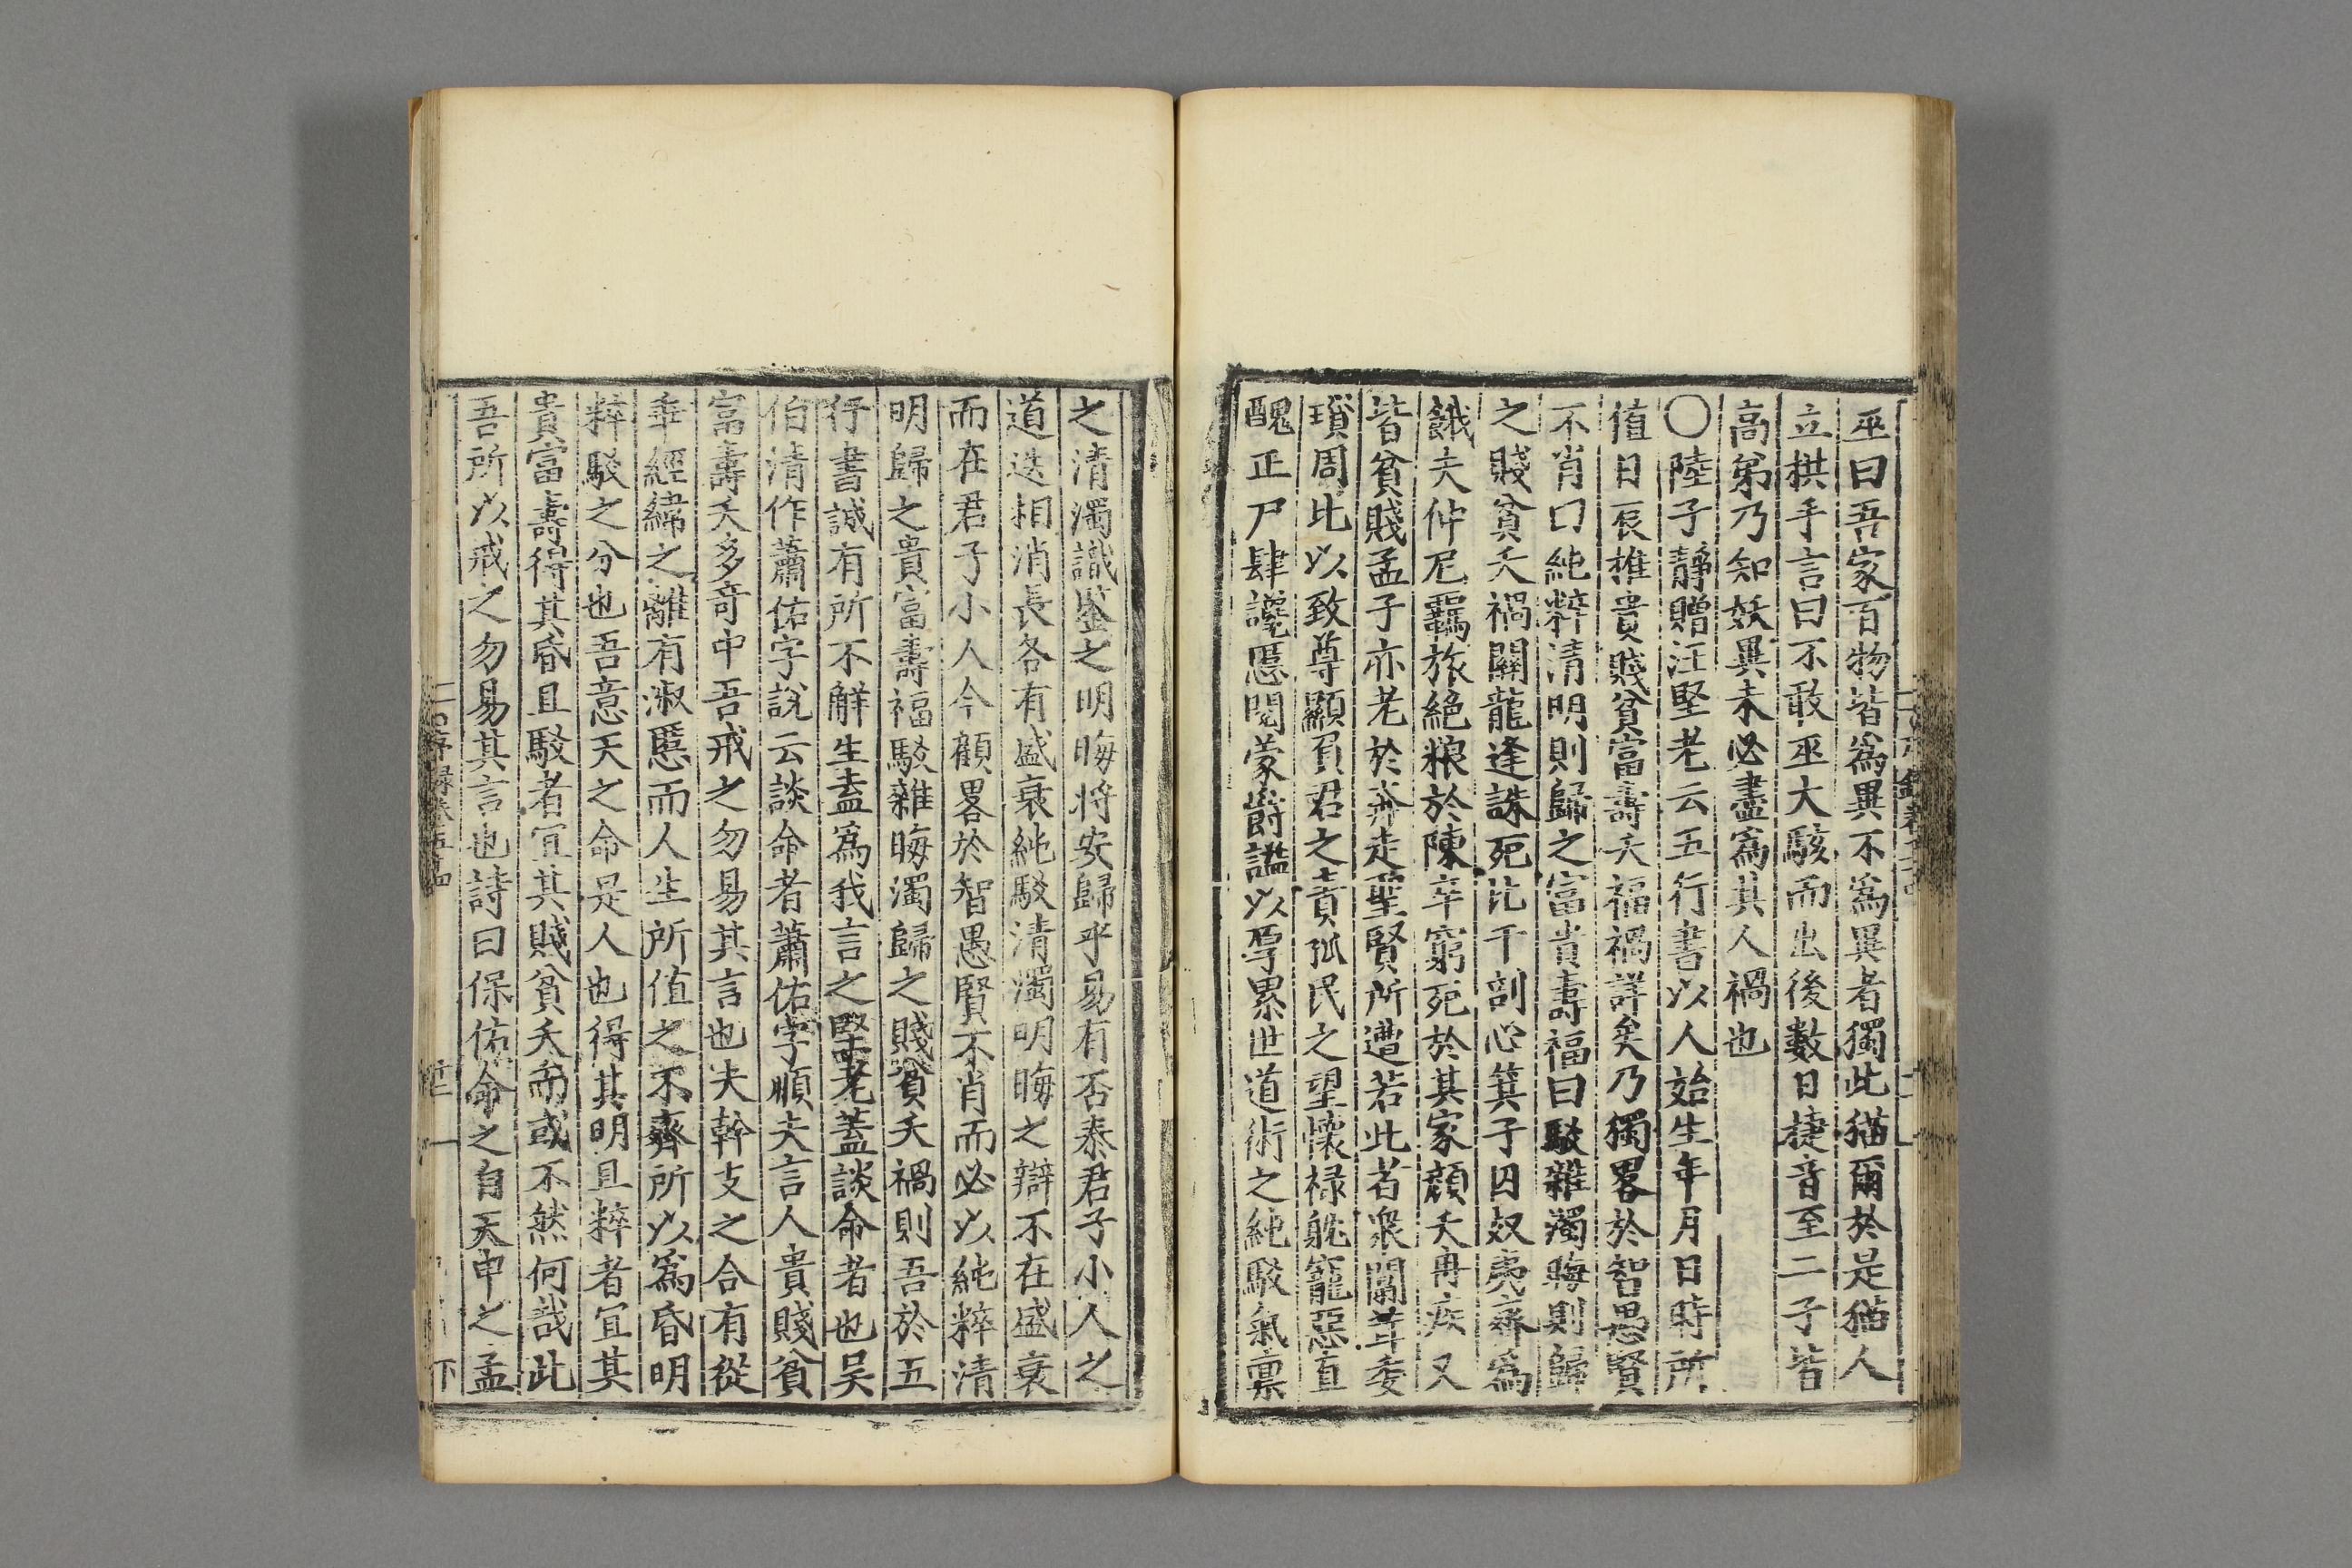 巫曰吾家百物皆為異不為異者獨此猫爾於是猫人
立拱手言曰不敢巫大駭而出後數日捷音至二子皆
高弟乃知妖異未必盡為其人禍也
〇陸子靜贈汪堅老云五行書以人始生年月日時所
值日辰推貴賤貧富壽夭福禍詳矣乃獨畧於智愚賢
不肖曰純粹清明則歸之富貴壽福曰駁雜濁晦則歸
之賤貧夭禍關龍逢誅死比干剖心箕子囚奴夷齊為
餓夫仲尼羈旅絕粮於陳卒窮死於其家顏夭冉疾又
皆貧賤孟子亦老於奔走聖賢所遭若此者衆闒茸委
瑣周比以致尊顯負君之責孤民之望懷禄躭寵惡直
醜正尸肆讒慝閱蒙爵謚以厚累世道術之純駁氣稟
之清濁識鉴之明晦将安歸乎易有否泰君子小人之
道迭相消長各有盛衰純駁清濁明晦之辯不在盛衰
而在君子小人今顧畧於智愚賢不肖而必以純粹清
明歸之貴富壽福駁雜晦濁歸之賤貧夭禍則吾於五
行書誠有所不觧生盍為我言之堅老蓋談命者也吴
伯清作蕭佑字說云談命者蕭佑字順夫言人貴賤貧
富壽夭多奇中吾戒之勿易其言也夫幹支之合有從
乖經緯之離有淑慝而人生所值之不齊所以為昏明
粹駁之分也吾意天之命是人也得其明且粹者宜其
貴富壽得其昏且駁者宜其賤貧夭而或不然何哉此
吾所以戒之勿易其言也詩曰保佑命之自天申之孟
下